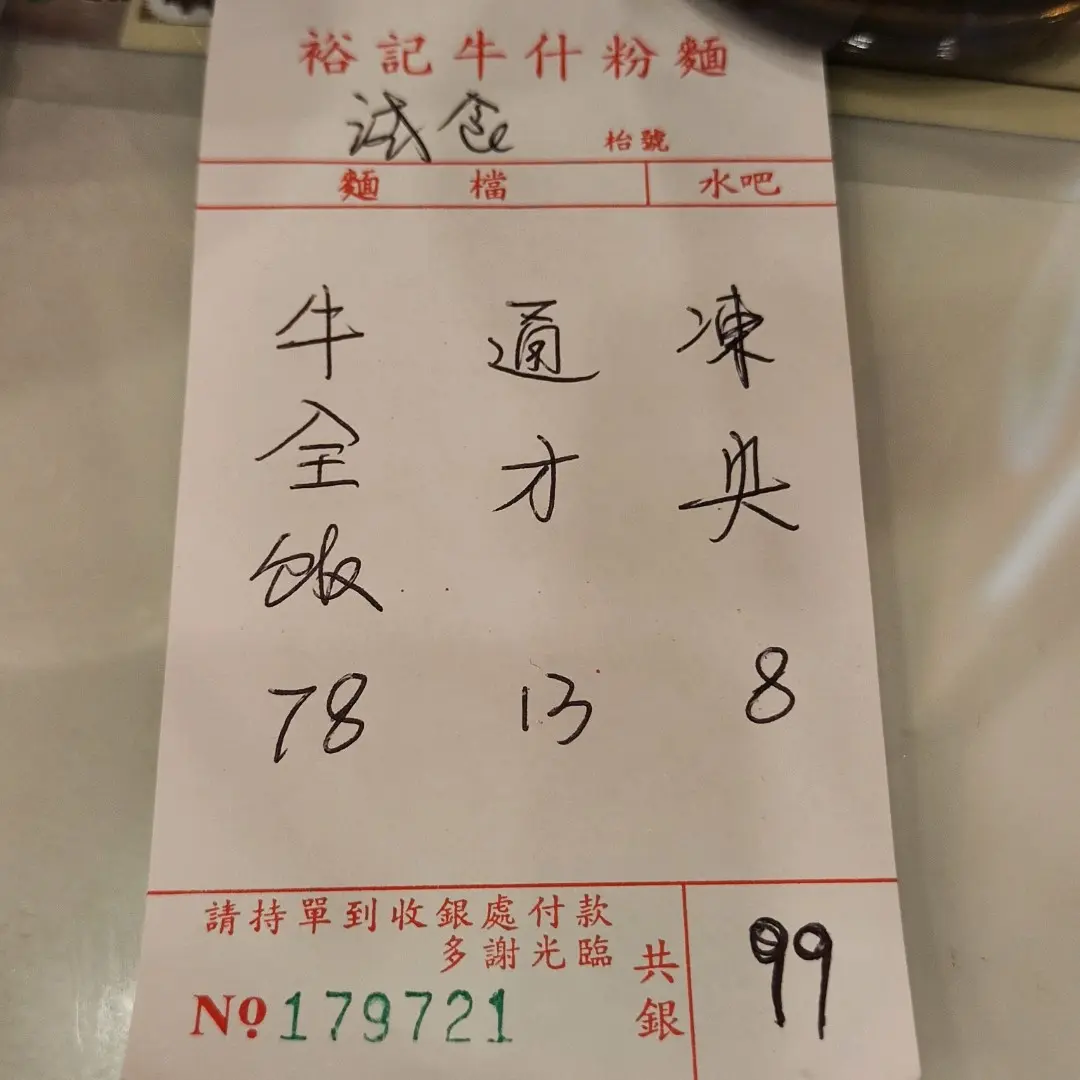 裕記牛什粉麵
試食 枱號
麵檔 水吧
牛全飯
78
通才
13
凍奥
8
請持單到收銀處付款
多謝光臨
共銀
99
Nº 179721